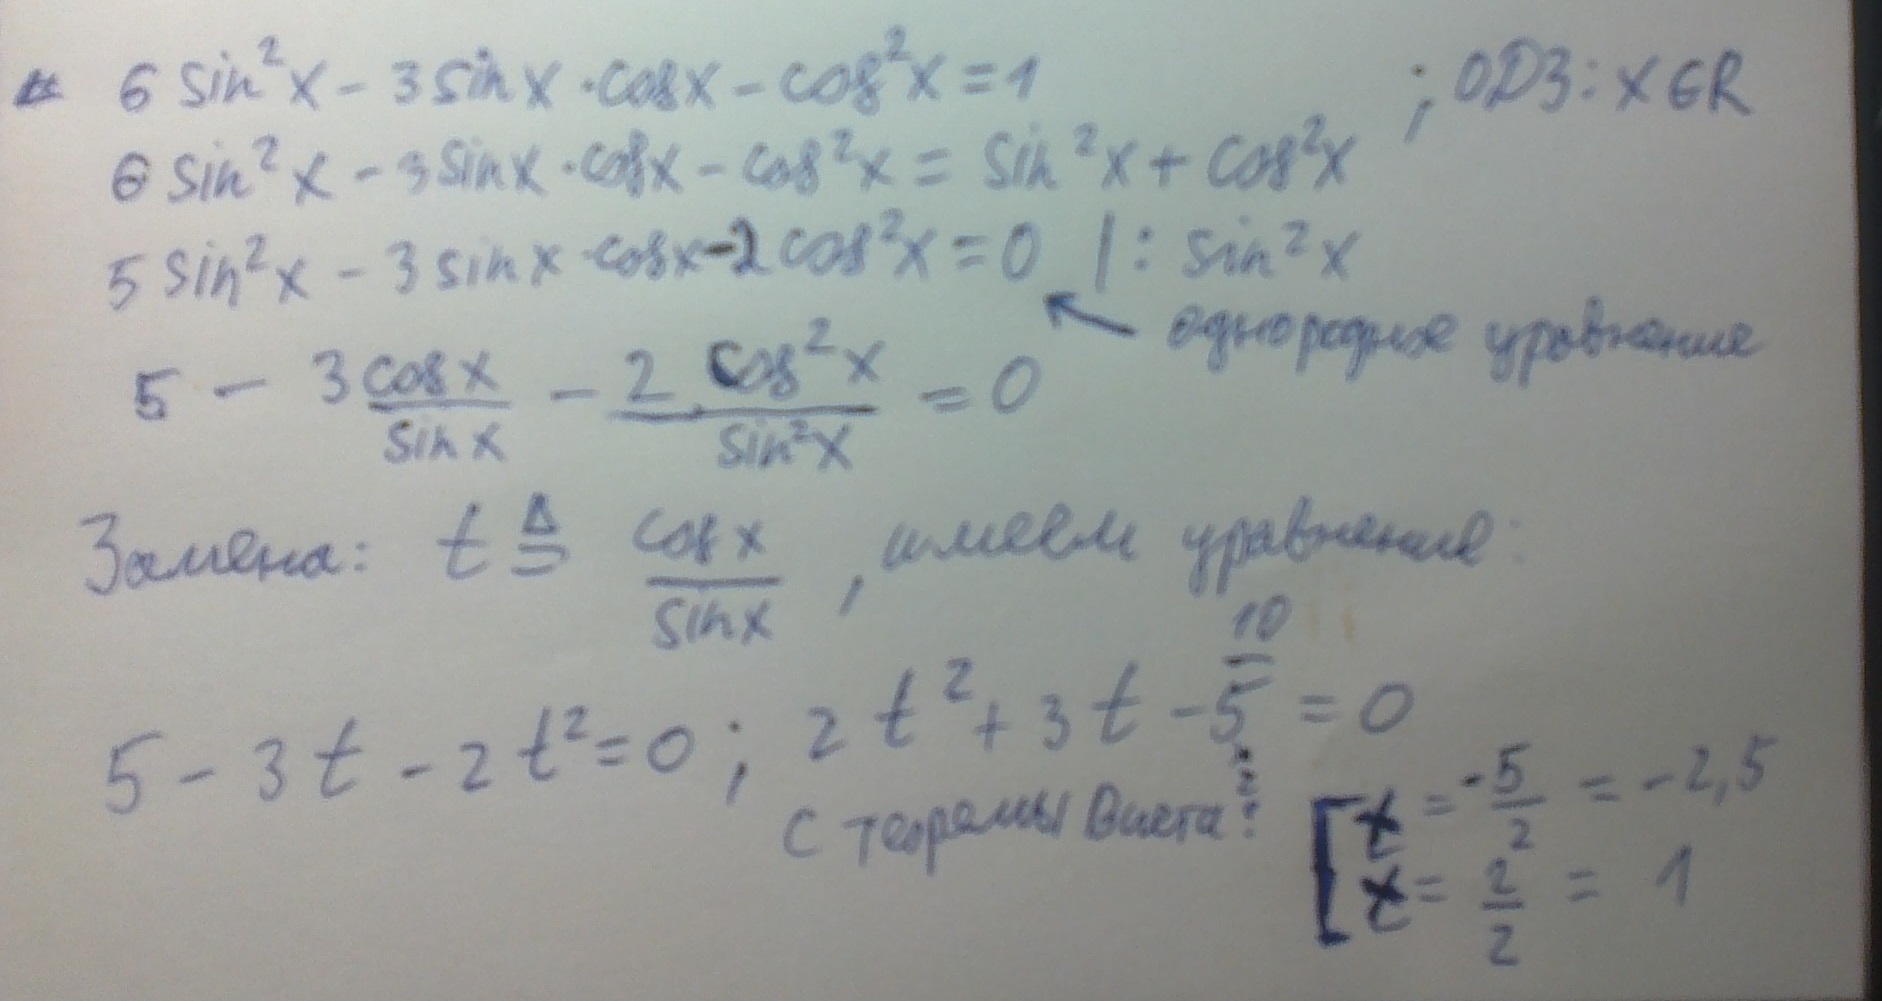 6 sin²x - 3 sinx · cosx - cos²x = 1 ; ОДЗ: x ∈ R
6 sin²x - 3 sinx · cosx - cos²x = sin²x + cos²x
5 sin²x - 3 sinx · cosx - 2 cos²x = 0 | : sin²x
однородное уравнение
5 - 3 cosx/sinx - 2 cos²x/sin²x = 0
Замена: t ≜ cosx/sinx , имеем уравнение:
10
5 - 3t - 2t² = 0 ; 2t² + 3t - 5 = 0
· 2
С теоремы Виета: [ t = -5/2 = -2,5
t = 2/2 = 1